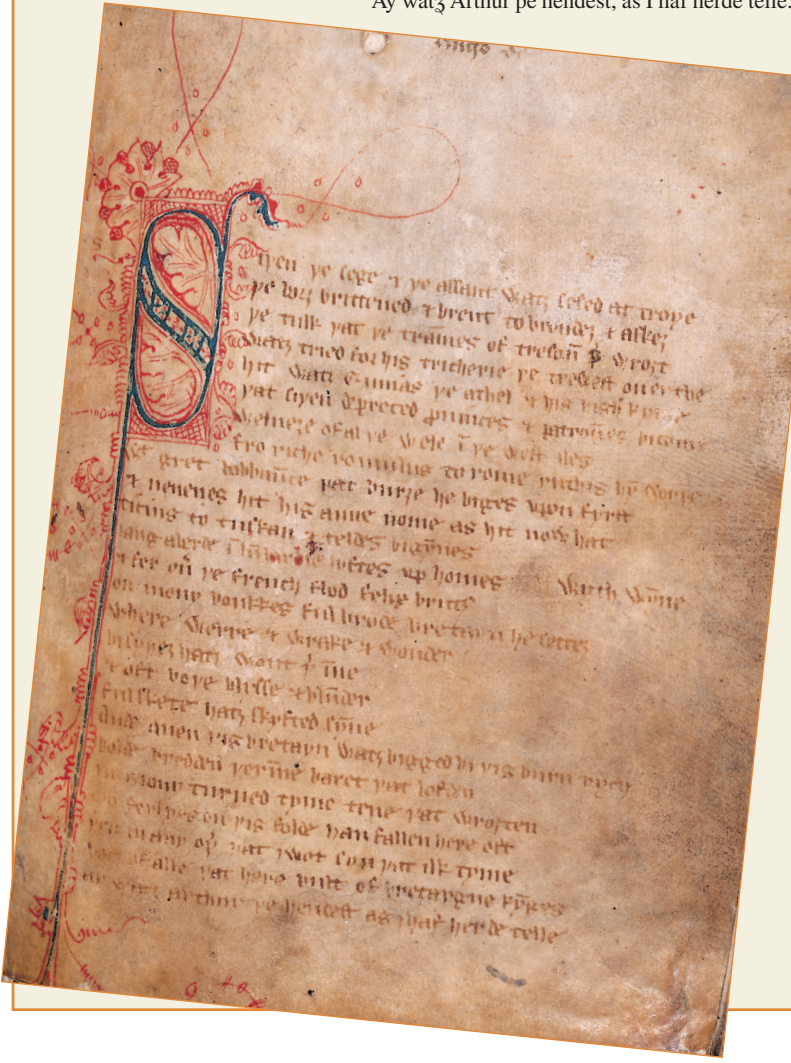 Ay watȝ Arthur þe hendest, as I haf herde telle.
Hugo de
Siþen þe sege & þe assaut watz sesed at troye
þe borȝ brittened & brent to brondeȝ & askez
þe tulk þat þe trāmes of tresoū þ̄ wroȝt
watz tried for his tricherie þe trewest on erthe
hit watz Ennias þe athel & his highe kynde
þat siþen depreced prouinces & patroūes bicome
welneȝe of al þe wele ī þe west iles
fro riche romulus to rome ricchis hȳ swyþe
wt gret bobbaūce þat burȝe he biges vpon fyrst
& neuenes hit his aune nome as hit now hat
ticius to tuskan & teldes bigȳnes
langaberde ī lūbardie lyftes vp homes
& fer oū þe french flod felix brutus
on mony bonkkes ful brode bretayn he settez wyth wȳne
where werre & wrake & wonder
bi syþez hatz wont þ̄ īne
& oft boþe blysse & blūder
ful skete hatz skyfted sȳne
Ande quen þis bretayn watz bigged bi þis burn rych
bolde bredden þerīne baret þat lofden
in mony turned tyme tene þat wroȝten
mo ferlyes on þis folde han fallen here oft
þen in any oþ̄ þat I wot syn þat ilk tyme
bot of alle þat here bult of bretaygne kȳges
ay watz Arthur þe hendest as I haf herde telle